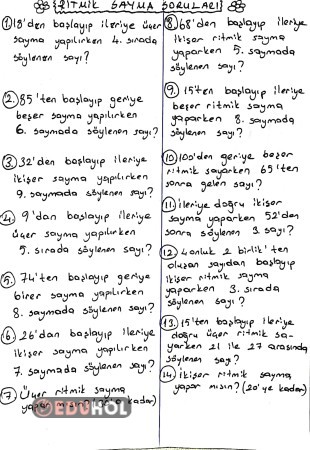 RİTMİK SAYMA SORULARI
1) 18'den başlayıp ileriye üçer
sayma yapılırken 4. sırada
söylenen sayı?
2. 85'ten başlayıp geriye
beşer sayma yapılırken
6. saymada söylenen sayı?
3. 32'den başlayıp ileriye
ikişer sayma yapılırken
9. saymada söylenen sayı?
4. 9'dan başlayıp ileriye
üçer sayma yapılırken
5. sırada söylenen sayı?
5. 74'ten başlayıp geriye
birer sayma yapılırken
8. saymada söylenen sayı?
6. 26'dan başlayıp ileriye
ikişer sayma yapılırken
7. saymada söylenen sayı?
7) Üçer ritmik sayma
yapar mısın? kadar)
EĞİTİMHOL
8. 68'den başlayıp ileriye
ikişer ritmik sayma
yaparken 5. saymada
söylenen sayı?
9. 15'ten başlayıp ileriye
beşer ritmik sayma
yaparken 8. saymada
söylenen sayı?
10) 100'den geriye beşer
ritmik sayarken 65'ten
sonra gelen sayı?
11) ileriye doğru ikişer
sayma yaparken 52'den
sonra söylenen 3. sayı?
12) 4 onluk 2 birlik'ten
oluşan sayıdan başlayıp
ikişer ritmik sayma
yaparken 3. sırada
söylenen sayı?
13. 15'ten başlayıp ileriye
doğru üçer ritmik sa-
yarken 21 ile 27 arasında
söylenen sayı?
14) İkişer ritmik sayma
yapar mısın? (20'ye kadar)